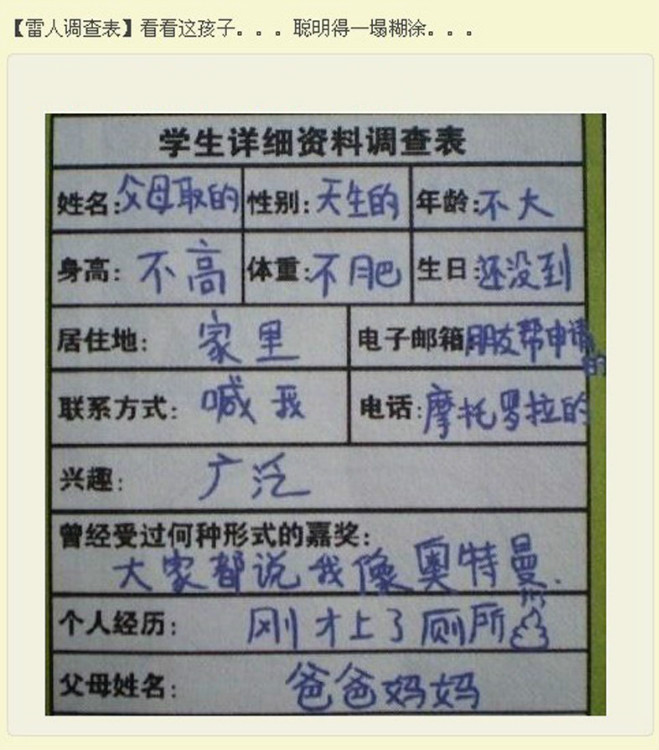 【雷人调查表】看看这孩子。。。聪明得一塌糊涂。。。
学生详细资料调查表
姓名:父母取的 性别:天生的 年龄:不大
身高:不高 体重:不肥 生日:还没到
居住地:家里 电子邮箱:朋友帮申请的
联系方式:喊我 电话:摩托罗拉的
兴趣:广泛
曾经受过何种形式的嘉奖:
大家都说我像奥特曼.
个人经历:刚才上了厕所
父母姓名:爸爸妈妈